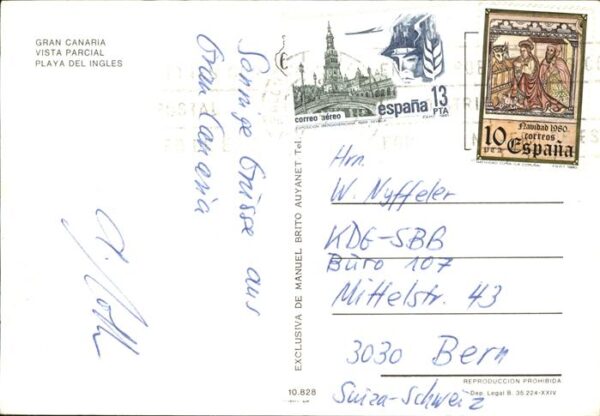 GRAN CANARIA
VISTA PARCIAL
PLAYA DEL INGLES
Sonnige Grüsse aus
Gran Canaria
EXCLUSIVA DE MANUEL BRITO AUYANET Tel.
correo aéreo
españa 13
PTA
Navidad 1980.
correos
10 pta España
Hrn.
W. Nyffeler
KDG-SBB
Büro 107
Mittelstr. 43
3030 Bern
Suiza-Schweiz
REPRODUCCION PROHIBIDA
Dep. Legal B. 35.224-XXIV
10.828